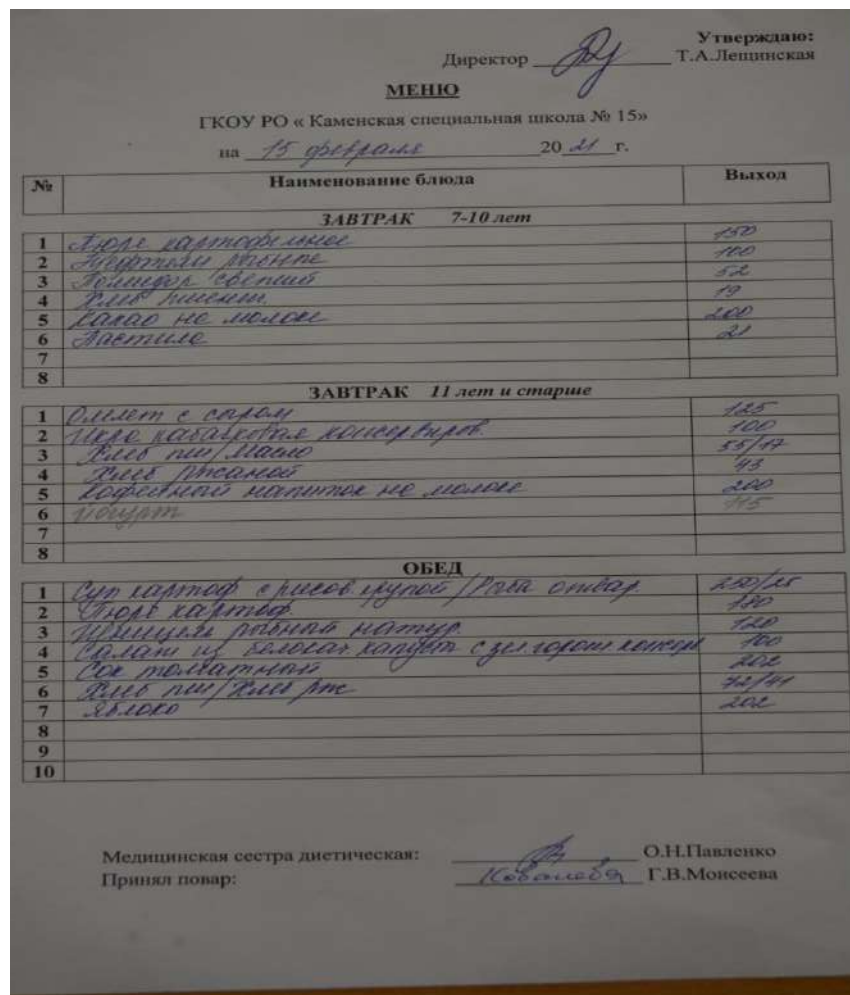 Утверждаю:
Директор Т.А.Лещинская
МЕНЮ
ГКОУ РО « Каменская специальная школа № 15»
на 15 февраля 20 21 г.
№ Наименование блюда Выход
ЗАВТРАК 7-10 лет
1 Пюре картофельное 150
2 Тефтели рыбные 100
3 Помидор свежий 52
4 Хлеб пшенич. 19
5 Какао на молоке 200
6 Пастила 21
7
8
ЗАВТРАК 11 лет и старше
1 Омлет с сыром 125
2 Икра кабачковая консервиров. 100
3 Хлеб пш/Масло 55/17
4 Хлеб ржаной 43
5 Кофейный напиток на молоке 200
6 Йогурт 115
7
8
ОБЕД
1 Суп картоф с рисов. крупой /Рыба отвар. 250/25
2 Пюре картоф. 180
3 Шницель рыбный натур. 120
4 Салат из белокач капусты с зел. горош. консерв 100
5 Сок томатный 202
6 Хлеб пш/Хлеб рж 72/41
7 Яблоко 202
8
9
10
Медицинская сестра диетическая: О.Н.Павленко
Принял повар: Ковалева Г.В.Моисеева